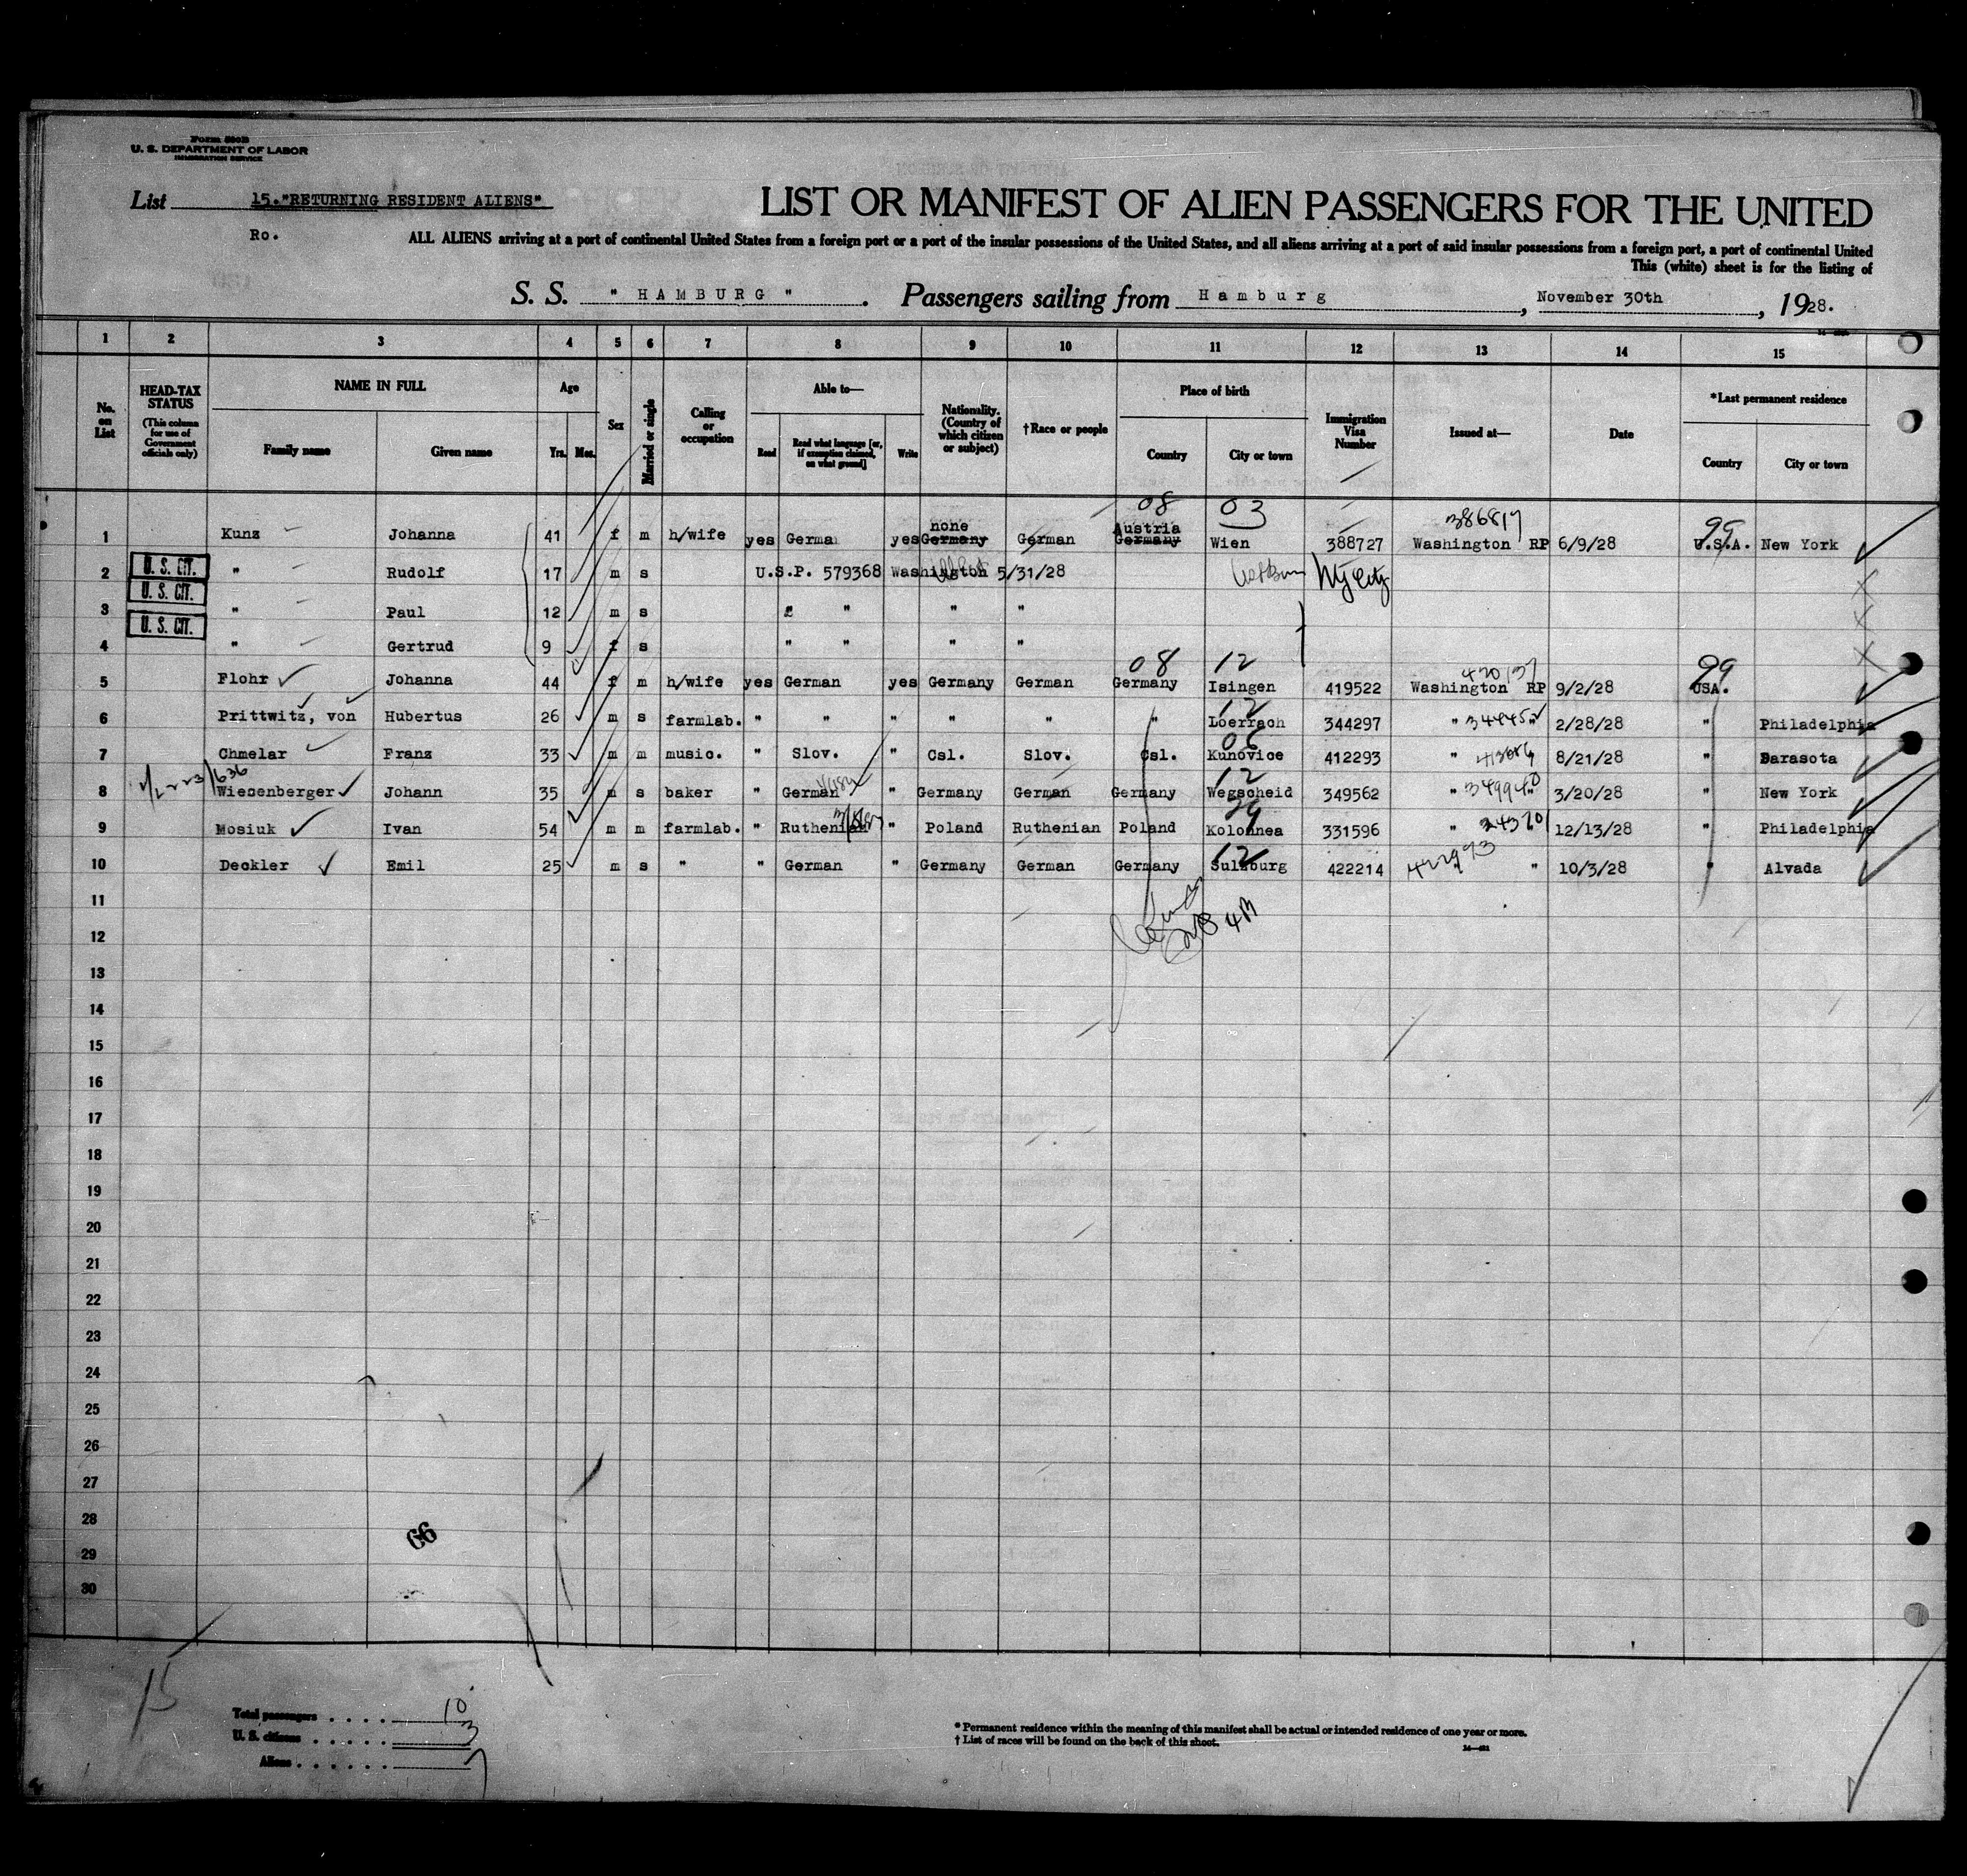 Form 500B
U. S. DEPARTMENT OF LABOR
IMMIGRATION SERVICE
List 15."RETURNING RESIDENT ALIENS"
Ro.
LIST OR MANIFEST OF ALIEN PASSENGERS FOR THE UNITED
ALL ALIENS arriving at a port of continental United States from a foreign port or a port of the insular possessions of the United States, and all aliens arriving at a port of said insular possessions from a foreign port, a port of continental United
This (white) sheet is for the listing of
S. S. " HAMBURG " . Passengers sailing from Hamburg , November 30th , 1928.
1 2 3 4 5 6 7 8 9 10 11 12 13 14 15
No. on List
HEAD-TAX STATUS (This column for use of Government officials only)
NAME IN FULL Family name Given name
Age Yrs. Mos.
Sex
Married or single
Calling or occupation
Able to— Read Read what language [or, if exemption claimed, on what ground] Write
Nationality. (Country of which citizen or subject)
†Race or people
Place of birth Country City or town
Immigration Visa Number
Issued at—
Date
*Last permanent residence Country City or town
08 03 386817 99
none Austria
1 Kunz Johanna 41 f m h/wife yes German yes Germany German Germany Wien 388727 Washington RP 6/9/28 U.S.A. New York
2 U. S. CIT. " Rudolf 17 m s U.S.P. 579368 Washington 5/31/28 NY City
3 U. S. CIT. " Paul 12 m s " " " "
4 U. S. CIT. " Gertrud 9 f s " " " "
08 12 420137 99
5 Flohr Johanna 44 f m h/wife yes German yes Germany German Germany Isingen 419522 Washington RP 9/2/28 USA.
12
6 Prittwitz, von Hubertus 26 m s farmlab. " " " " " " Loerrach 344297 " 2/28/28 " Philadelphia
7 Chmelar Franz 33 m m music. " Slov. " Csl. Slov. Csl. Kunovice 412293 " 8/21/28 " Sarasota
12
8 Wiesenberger Johann 35 m s baker " German " Germany German Germany Wegscheid 349562 " 3/20/28 " New York
9 Mosiuk Ivan 54 m m farmlab. " Ruthenian " Poland Ruthenian Poland Kolomea 331596 " 12/13/28 " Philadelphia
12 422973
10 Deckler Emil 25 m s " " German " Germany German Germany Sulzburg 422214 " " 10/3/28 " Alvada
11
12
13
14
15
16
17
18
19
20
21
22
23
24
25
26
27
28
29
30
15
Total passengers . . . . 10
U. S. citizens . . . . . 3
Aliens . . . . . . 7
* Permanent residence within the meaning of this manifest shall be actual or intended residence of one year or more.
† List of races will be found on the back of this sheet.